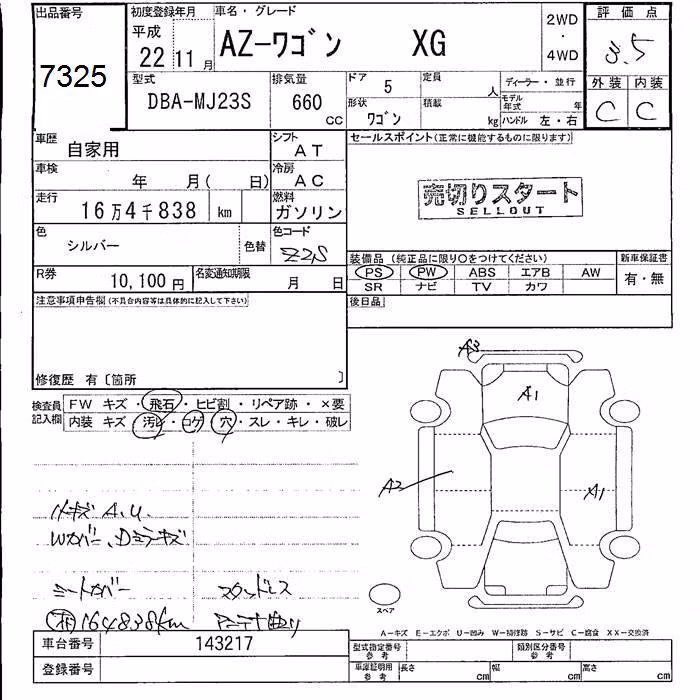 出品番号
7325
初度登録年月
平成
22 11 月
車名・グレード
AZ-ワゴン XG
2WD
・
4WD
評価点
3.5
外装 内装
C C
型式
DBA-MJ23S
排気量
660
CC
ドア 5
形状
ワゴン
定員
人
積載
kg
ディーラー・並行
モデル
年式 年
ハンドル 左・右
車歴
自家用
シフト
AT
車検
年 月( 日)
冷房
AC
走行
16万4千838 km
燃料
ガソリン
色
シルバー
色替
色コード
Z2S
R券
10,100円
名変通知期限
月 日
セールスポイント(正常に機能するものに限ります)
売切りスタート
SELLOUT
装備品(純正品に限り○をつけてください)
PS PW ABS エアB AW
SR ナビ TV カワ
新車保証書
有・無
後日品
注意事項申告欄(不具合内容等は具体的に記入して下さい)
修復歴 有〔箇所 〕
検査員
記入欄
FW キズ・飛石・ヒビ割・リペア跡・×要
内装 キズ・汚れ・コゲ・穴・スレ・キレ・破レ
A3
A1
A2
A1
スペア
小キズ A.U
Wカバー、Dミラーキズ
シートカバー
スタッドレス
164838km
アンテナ曲り
A-キズ E-エクボ U-凹み W-補修跡 S-サビ C-腐食 XX-交換済
車台番号
143217
登録番号
型式指定番号
参考
類別区分番号
参考
車庫証明用
参考
長さ cm
幅 cm
高さ cm